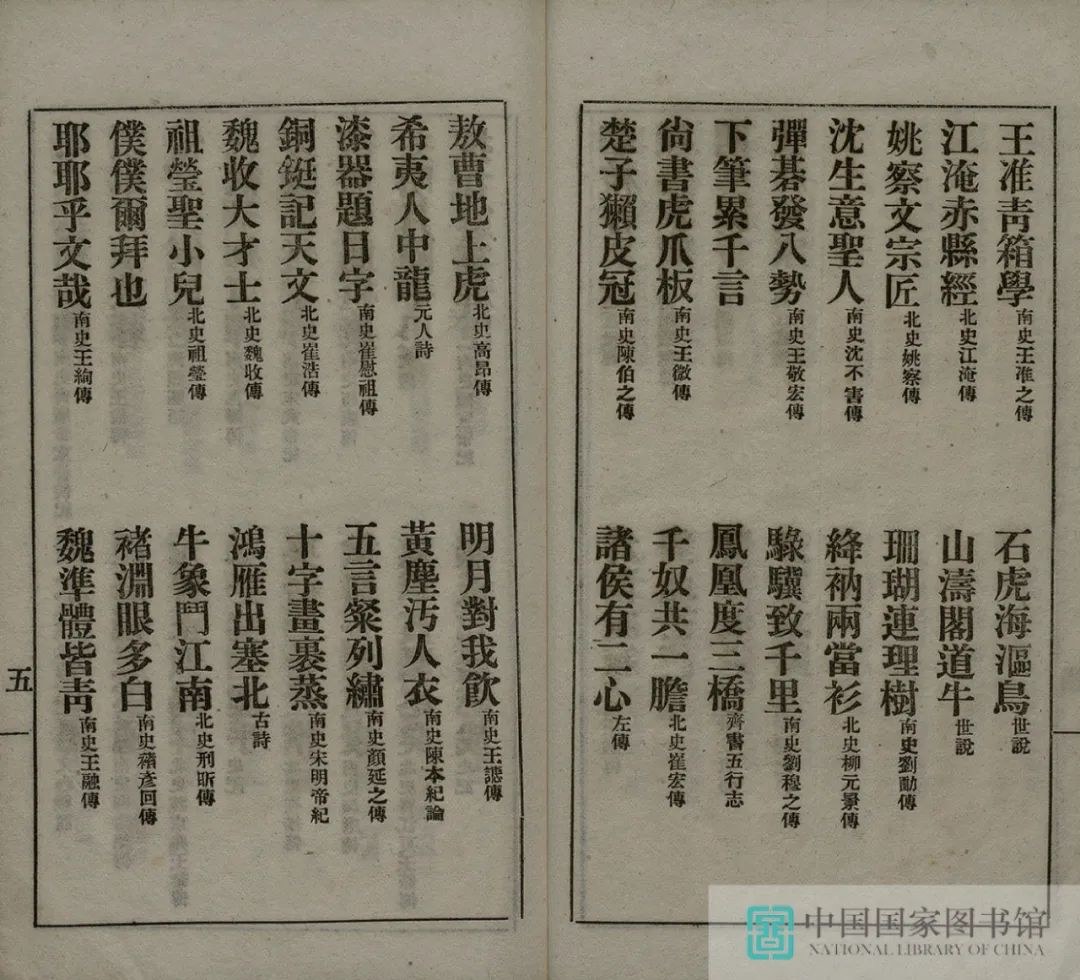 王准青箱學南史王准之傳
石虎海漚鳥世說
江淹赤縣經北史江淹傳
山濤閣道牛世說
姚察文宗匠北史姚察傳
珊瑚連理樹南史劉勔傳
沈生意聖人南史沈不害傳
絳衲兩當衫北史柳元景傳
彈碁發八勢南史王敬宏傳
騄驥致千里南史劉穆之傳
下筆累千言
鳳凰度三橋齊書五行志
尙書虎爪板南史王微傳
千奴共一膽北史崔宏傳
楚子獺皮冠南史陳伯之傳
諸侯有二心左傳
敖曹地上虎北史高昂傳
明月對我飲南史王譓傳
希夷人中龍元人詩
黃塵汚人衣南史陳本紀論
漆器題日字南史崔慰祖傳
五言粲列繡南史顏延之傳
銅鋌記天文北史崔浩傳
十字畫裹蒸南史宋明帝紀
魏收大才士北史魏收傳
鴻雁出塞北古詩
祖瑩聖小兒北史祖瑩傳
牛象鬥江南北史刑昕傳
僕僕爾拜也
褚淵眼多白南史褚彥回傳
耶耶乎文哉南史王絢傳
魏準體皆靑南史王融傳
五
中国国家图书馆
NATIONAL LIBRARY OF CHINA